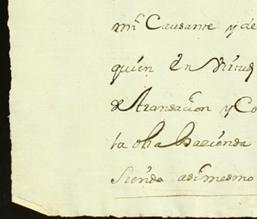 mi Causante y de
quien En Virtud
de Transacion y Co
ta otra Hazienda
Siendo asimesmo